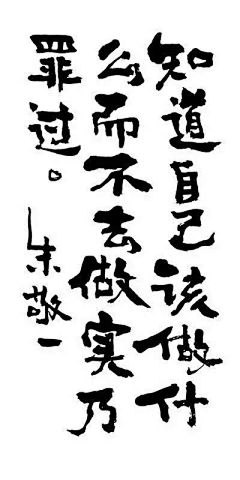 知道自己该做什
么而不去做实乃
罪过。
朱敬一